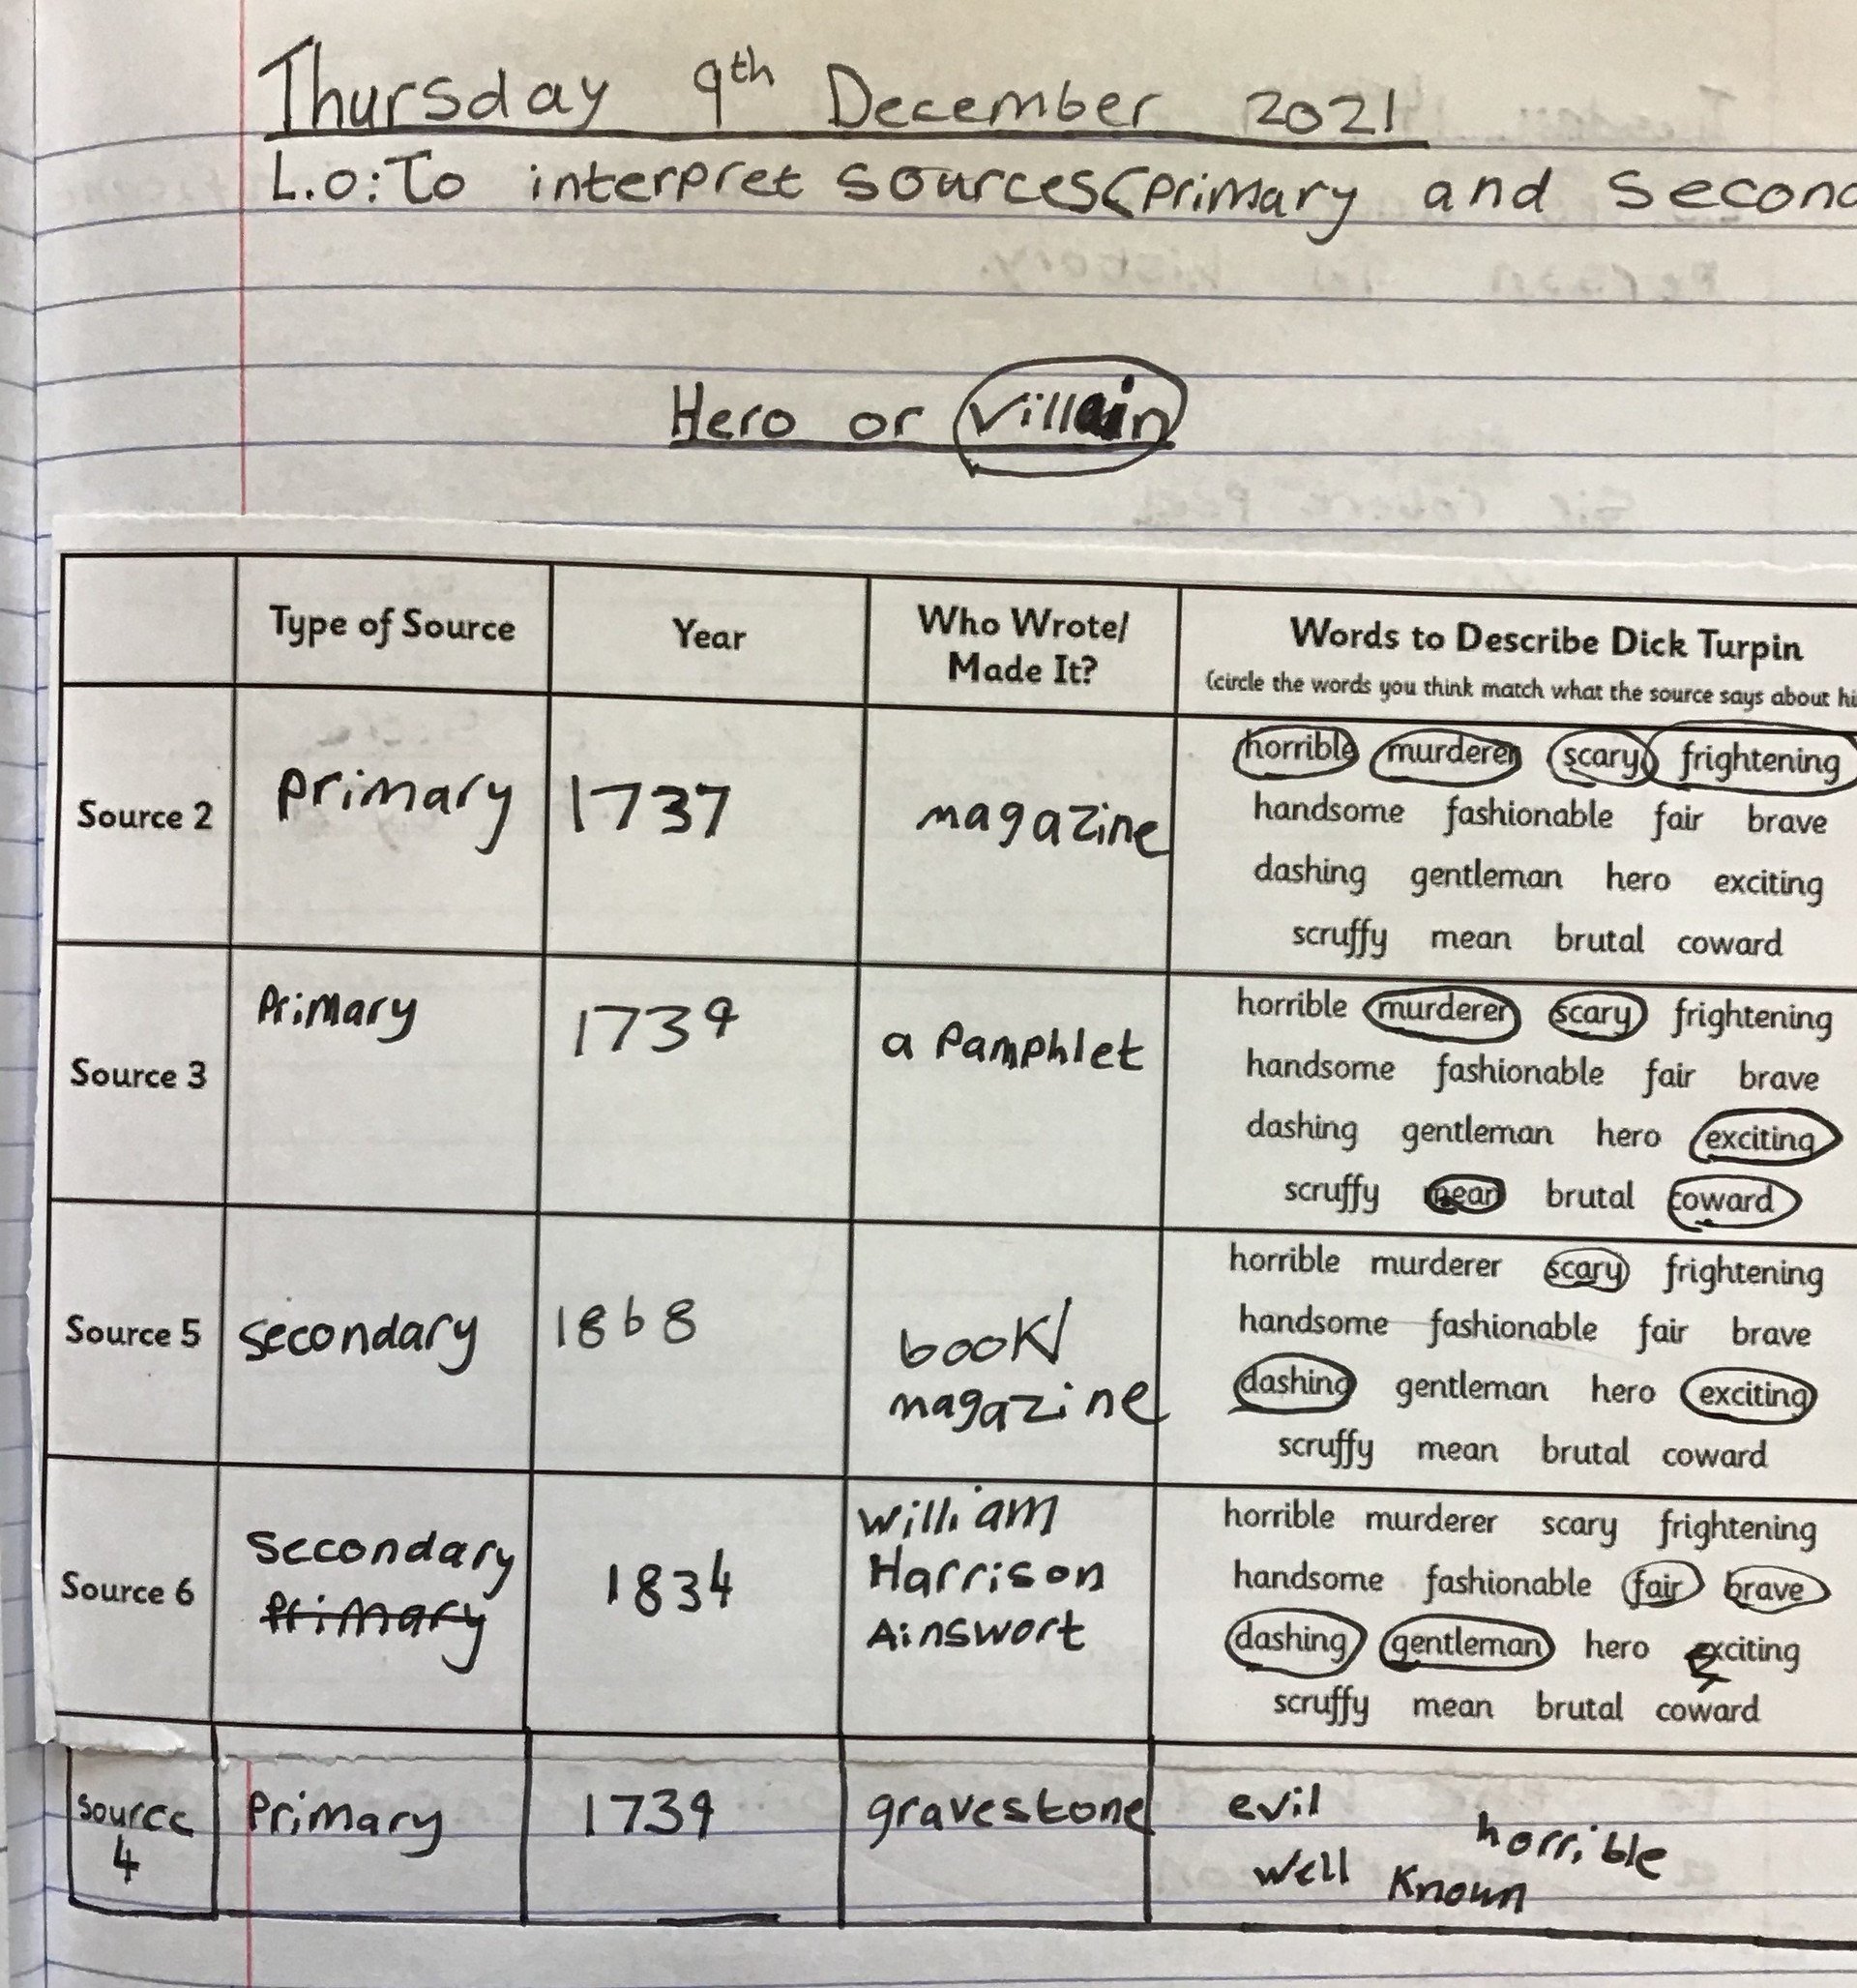 Thursday 9th December 2021
L.o: To interpret sources (primary and second
Hero or villain
Type of Source Year Who Wrote/ Made It? Words to Describe Dick Turpin
(circle the words you think match what the source says about hi
Source 2 primary 1737 magazine
horrible murderer scary frightening
handsome fashionable fair brave
dashing gentleman hero exciting
scruffy mean brutal coward
Source 3 Primary 1739 a Pamphlet
horrible murderer scary frightening
handsome fashionable fair brave
dashing gentleman hero exciting
scruffy mean brutal coward
Source 5 secondary 1868 book/
magazine
horrible murderer scary frightening
handsome fashionable fair brave
dashing gentleman hero exciting
scruffy mean brutal coward
Source 6 Secondary
Primary
1834
William
Harrison
Ainswort
horrible murderer scary frightening
handsome fashionable fair brave
dashing gentleman hero exciting
scruffy mean brutal coward
Source
4
Primary 1739 gravestone
evil horrible
well known